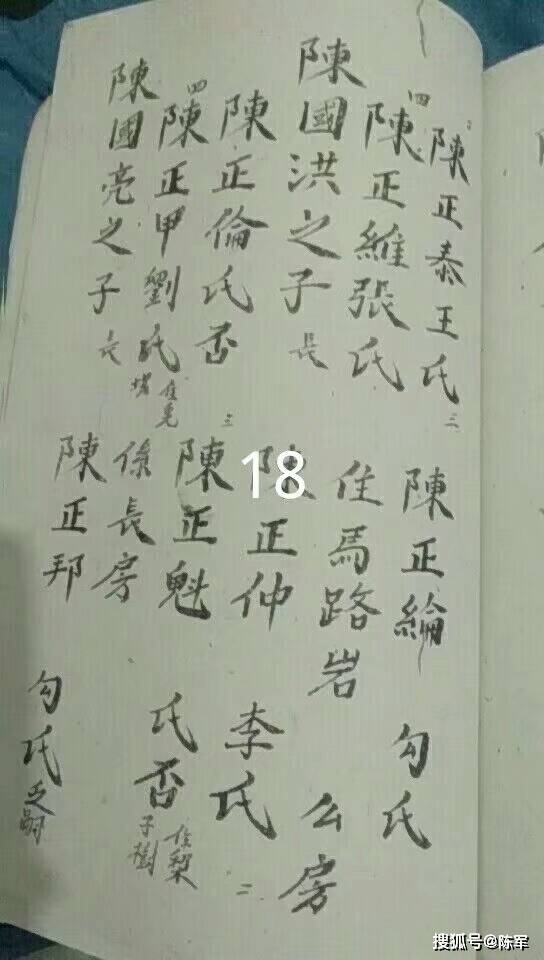 陳正泰王氏 三
陳正綸 勾氏
四 陳正維張氏
住馬路岩 么房
陳國洪之子 長
陳正仲 李氏 二
陳正倫氏否
三 陳正魁 氏否 住梨子樹
四 陳正甲劉氏
係長房
陳國亮之子 長
陳正邦 勾氏 乏嗣
18
搜狐号@陈军